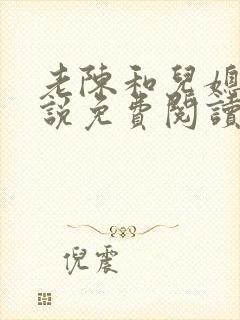 老陳和兒媳
說免費閱讀
倪震